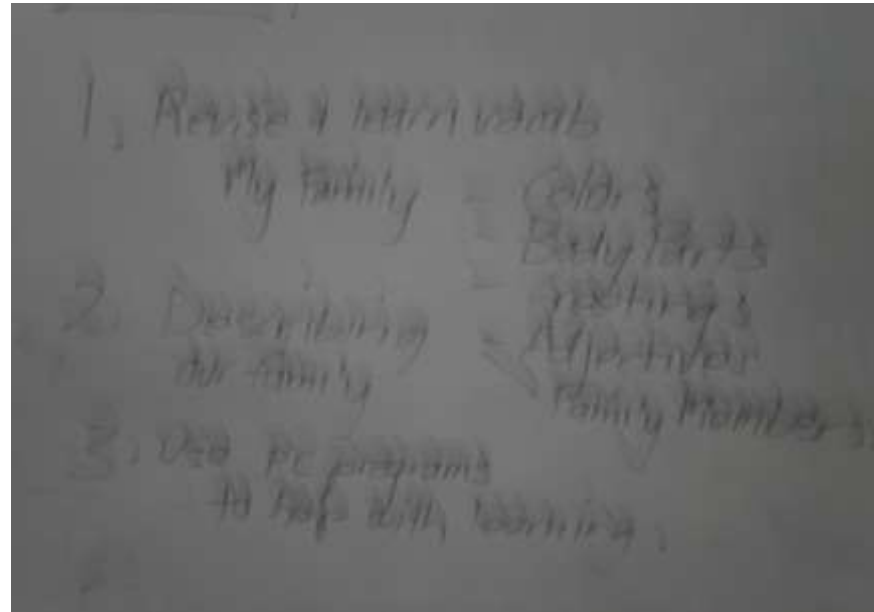 1, Revise & learn vocab
My Family - Colors
- Body Parts
- Greetings
2. Describing - Adjectives
our family Family Members.
3. Use PC programs
to help with learning.